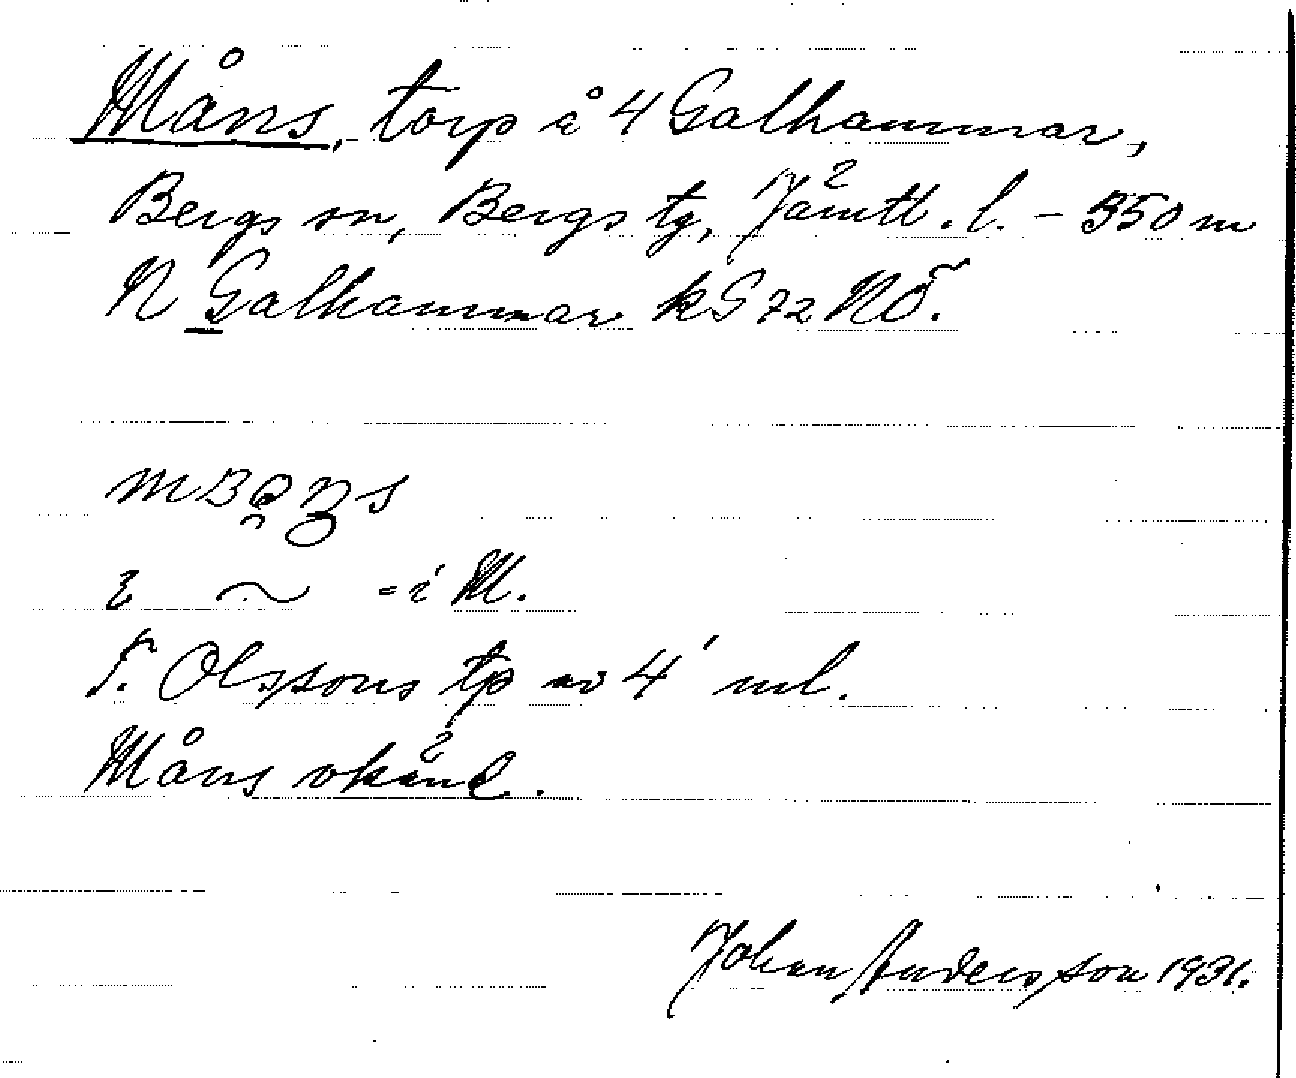 Måns, torp å 4 Galhammar,
Bergs sn, Bergs tg, Jämtl. l. - 350 m
N Galhammar k G 72 NÖ.
= i M.
T. Olssons tp av 4' ml.
Måns okänd.
Johan Andersson 1931.